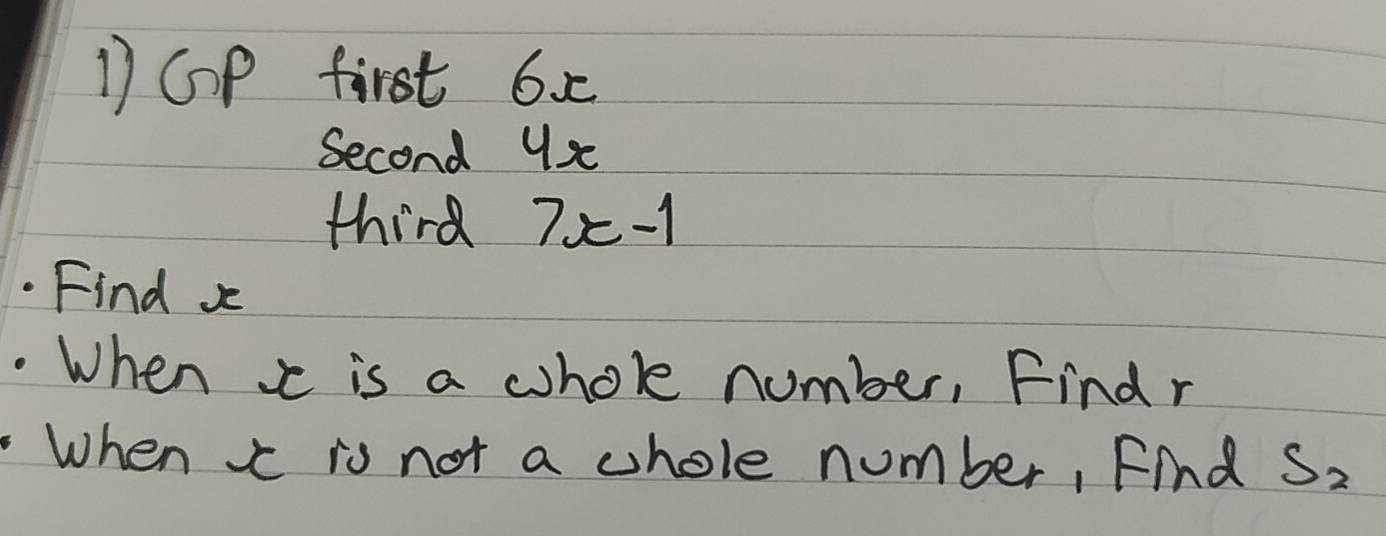 1) GP first 6x
second 4x
third 7x-1
· Find x
· When x is a whole number, Find r
· When x is not a whole number, Find S₂